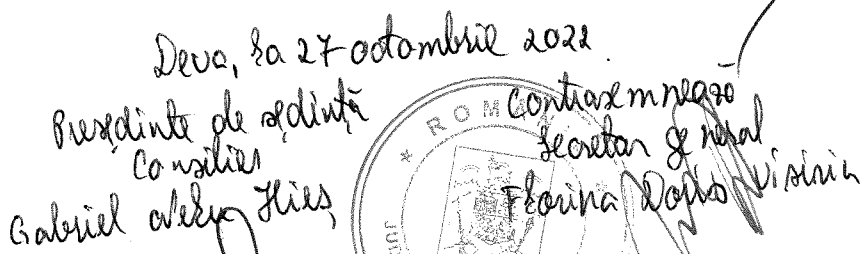 Deva, la 27 octombrie 2022
Președinte de ședință
Consilier
Gabriel Alexu Ilieș
Contrasemnează
Secretar general
Florina Doris Visirin
ROMÂ
JUD